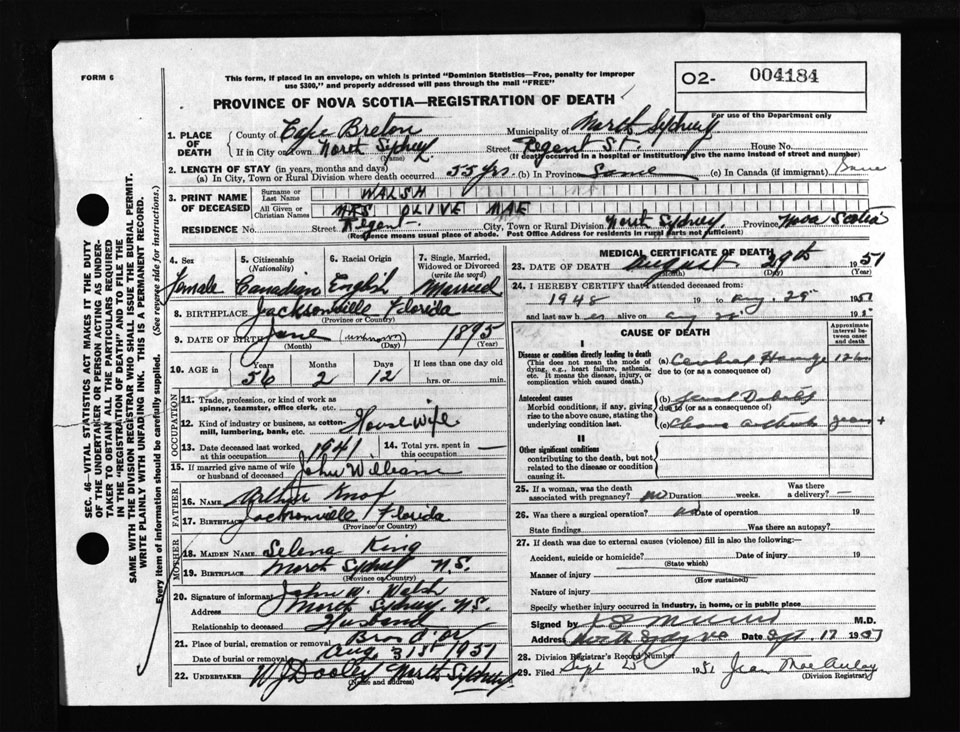 FORM 6
This form, if placed in an envelope, on which is printed "Dominion Statistics—Free, penalty for improper
use $300," and properly addressed will pass through the mail "FREE"
02- 004184
For use of the Department only
PROVINCE OF NOVA SCOTIA—REGISTRATION OF DEATH
1. PLACE OF DEATH
County of Cape Breton Municipality of North Sydney
If in City or Town North Sydney (Name) Street Regent St. House No.
(If death occurred in a hospital or institution, give the name instead of street and number)
2. LENGTH OF STAY (in years, months and days)
(a) In City, Town or Rural Division where death occurred 55 yrs. (b) In Province Same (c) In Canada (if immigrant) Same
3. PRINT NAME OF DECEASED
Surname or Last Name WALSH
All Given or Christian Names MRS OLIVE MAE
RESIDENCE No. Street Regent City, Town or Rural Division North Sydney, Province Nova Scotia
(Residence means usual place of abode. Post Office Address for residents in rural parts not sufficient)
4. Sex Female
5. Citizenship (Nationality) Canadian
6. Racial Origin English
7. Single, Married, Widowed or Divorced (write the word) Married
8. BIRTHPLACE Jacksonville Florida
(Province or Country)
9. DATE OF BIRTH June (Month) (unknown) (Day) 1895 (Year)
10. AGE in Years 56 Months 2 Days 12 If less than one day old hrs. or min.
OCCUPATION
11. Trade, profession, or kind of work as spinner, teamster, office clerk, etc.
12. Kind of industry or business, as cotton-mill, lumbering, bank, etc. Housewife
13. Date deceased last worked at this occupation 1941 14. Total yrs. spent in this occupation —
15. If married give name of wife or husband of deceased John William
FATHER
16. NAME Arthur Knox
17. BIRTHPLACE Jacksonville Florida
(Province or Country)
MOTHER
18. MAIDEN NAME Selena King
19. BIRTHPLACE North Sydney N.S.
(Province or Country)
20. Signature of informant John W. Walsh
Address North Sydney, N.S.
Relationship to deceased Husband
21. Place of burial, cremation or removal Bras d'or
Date of burial or removal Aug 31st 1951
22. UNDERTAKER W J Dooley North Sydney
(Name and address)
MEDICAL CERTIFICATE OF DEATH
23. DATE OF DEATH August (Month) 29th (Day) 1951
24. I HEREBY CERTIFY that I attended deceased from:
1948 19 to Aug. 29th 1951
and last saw her alive on Aug 19
CAUSE OF DEATH
Approximate interval between onset and death
I
Disease or condition directly leading to death
(This does not mean the mode of dying, e.g., heart failure, asthenia, etc. It means the disease, injury, or complication which caused death.)
(a) Cerebral
due to (or as a consequence)
Antecedent causes
Morbid conditions, if any, giving rise to the above cause, stating the underlying condition last.
(b)
due to (or as a consequence of)
(c) years +
II
Other significant conditions
contributing to the death, but not related to the disease or condition causing it.
25. If a woman, was the death associated with pregnancy? no Duration weeks. Was there a delivery? —
26. Was there a surgical operation? no Date of operation 19
State findings Was there an autopsy?
27. If death was due to external causes (violence) fill in also the following:—
Accident, suicide or homicide? (State which) Date of injury 19
Manner of injury (How sustained)
Nature of injury
Specify whether injury occurred in industry, in home, or in public place
Signed by M.D.
Address Date Sept. 17 1951
28. Division Registrar's Record Number
29. Filed Sept 1951 Jean MacAulay
(Division Registrar)
SEC. 46—VITAL STATISTICS ACT MAKES IT THE DUTY
OF THE UNDERTAKER OR PERSON ACTING AS UNDER-
TAKER TO OBTAIN ALL THE PARTICULARS REQUIRED
IN THE "REGISTRATION OF DEATH" AND TO FILE THE
SAME WITH THE DIVISION REGISTRAR WHO SHALL ISSUE THE BURIAL PERMIT.
WRITE PLAINLY WITH UNFADING INK. THIS IS A PERMANENT RECORD.
Every item of information should be carefully supplied. (See reverse side for instructions.)